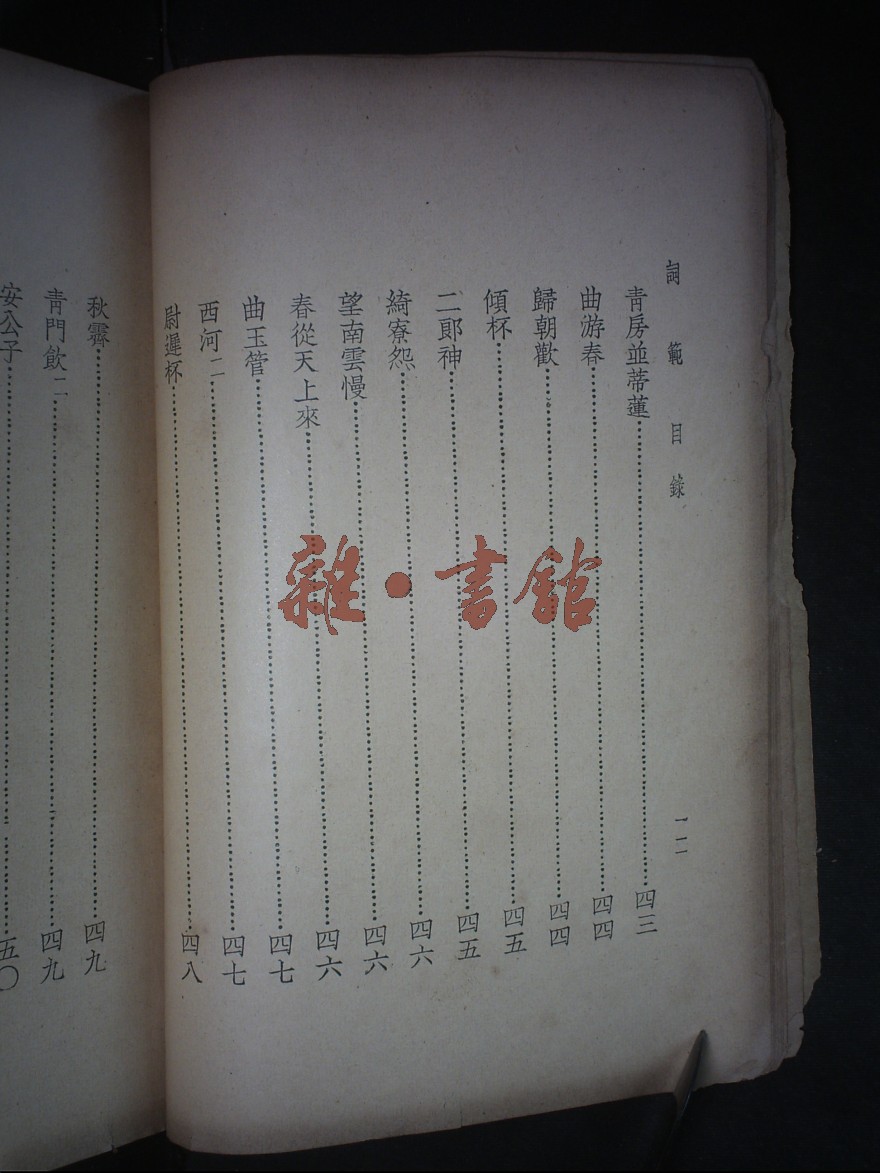 詞範目錄
一二
青房並蒂蓮 四三
曲游春 四四
歸朝歡 四四
傾杯 四五
二郎神 四五
綺寮怨 四六
望南雲慢 四六
春從天上來 四六
曲玉管 四七
西河二 四七
尉遲杯 四八
秋霽 四九
青門飲二 四九
安公子 五〇
雜·書館